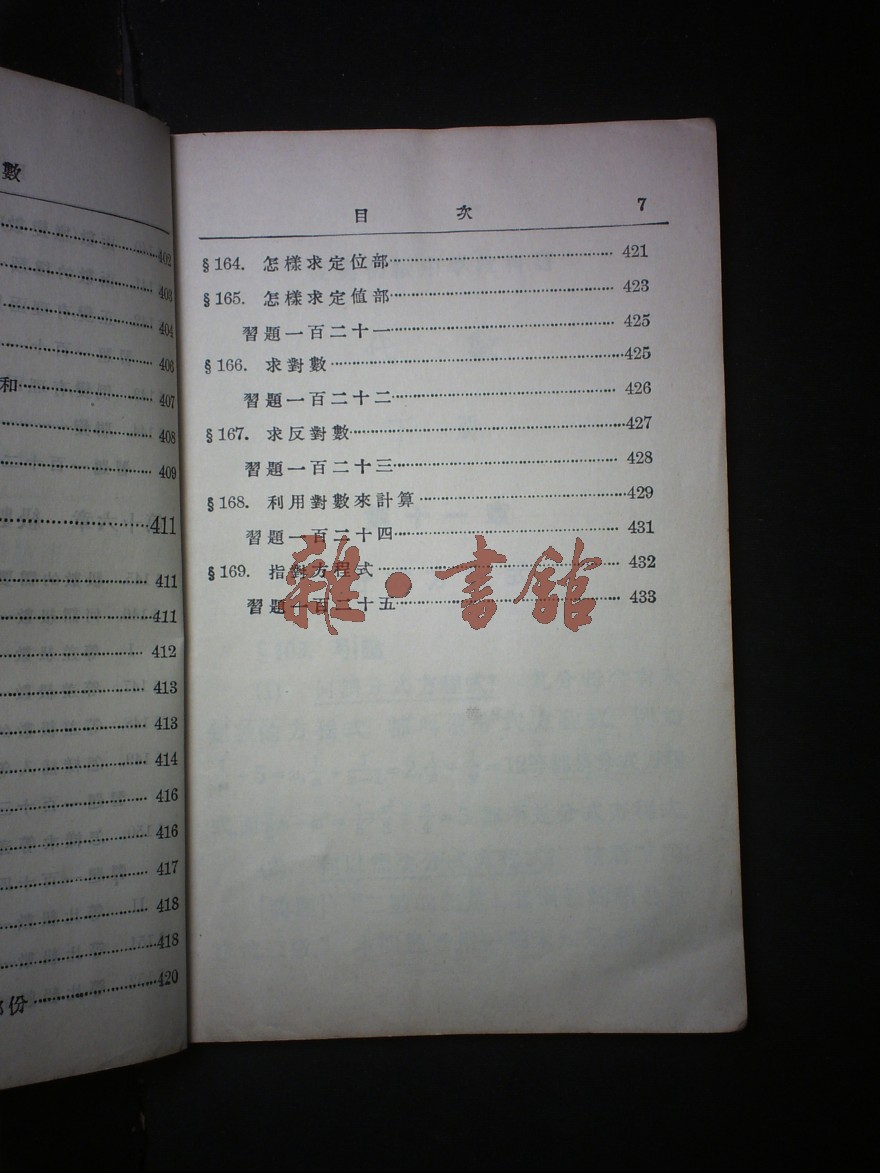 數
402
403
404
406
和 407
408
409
411
411
411
412
413
413
414
416
416
417
418
418
份 420
目 次 7
§164. 怎樣求定位部 421
§165. 怎樣求定值部 423
習題一百二十一 425
§166. 求對數 425
習題一百二十二 426
§167. 求反對數 427
習題一百二十三 428
§168. 利用對數來計算 429
習題一百二十四 431
§169. 指對方程式 432
習題一百二十五 433
雜·書館